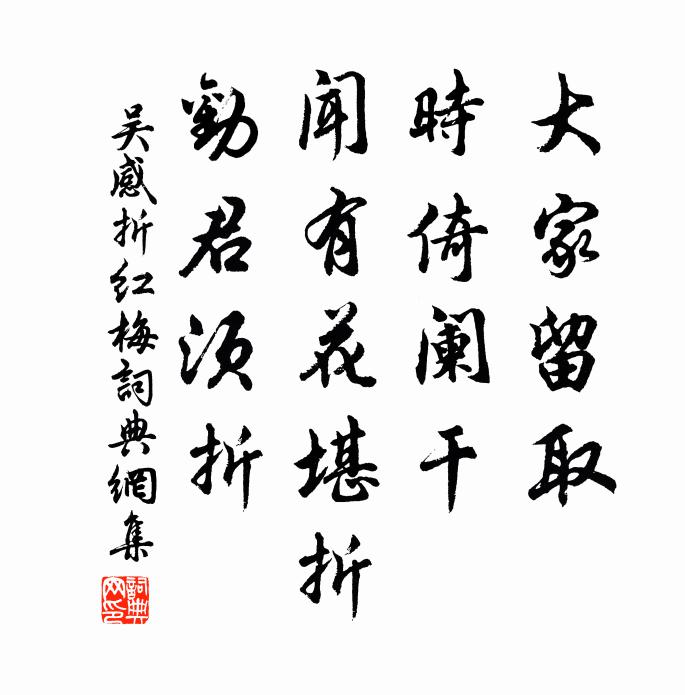 大家留取
時倚阑干
聞有花堪折
勸君须折
吴感折红梅詞典網集
詞典網印